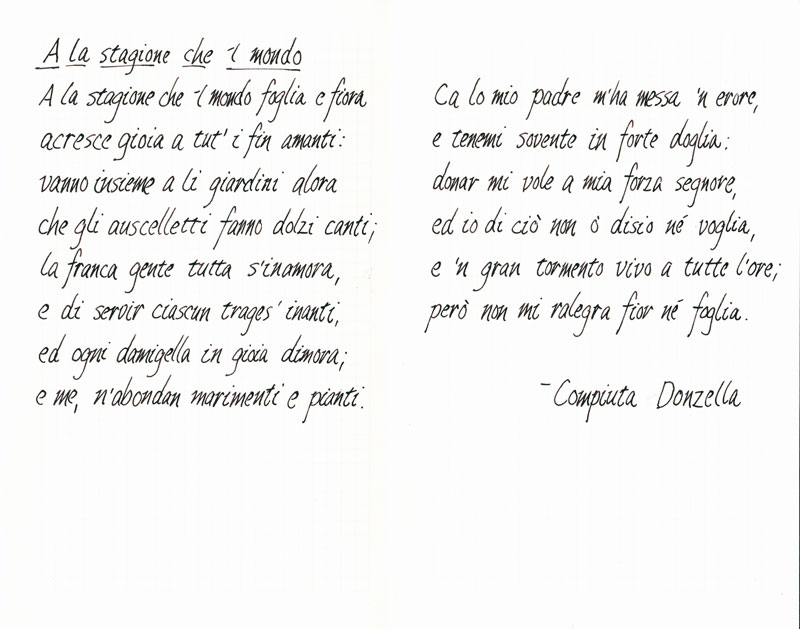 A la stagione che 'l mondo
A la stagione che 'l mondo foglia e fiora
acresce gioia a tut' i fin amanti:
vanno insieme a li giardini alora
che gli auscelletti fanno dolzi canti;
la franca gente tutta s'inamora,
e di servir ciascun trages' inanti,
ed ogni damigella in gioia dimora;
e me, n'abondan marimenti e pianti.
Ca lo mio padre m'ha messa 'n erore,
e tenemi sovente in forte doglia:
donar mi vole a mia forza segnore,
ed io di ciò non ò disio né voglia,
e 'n gran tormento vivo a tutte l'ore;
però non mi ralegra fior né foglia.
- Compiuta Donzella